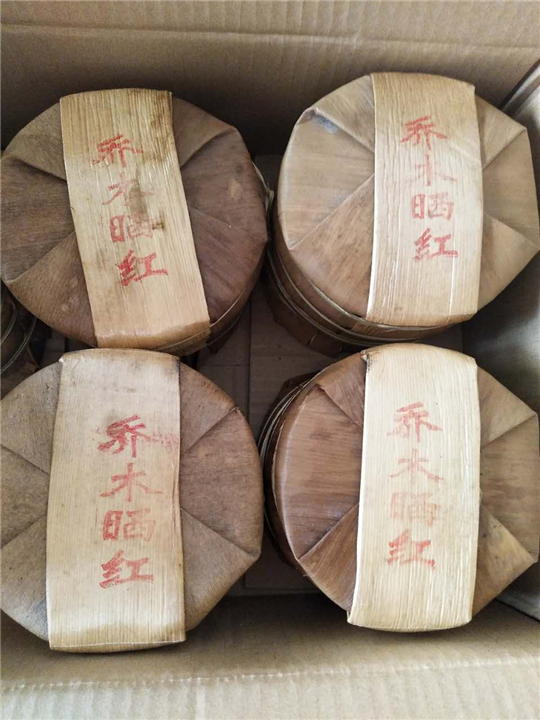 乔木晒红
乔木晒红
乔木晒红
乔木晒红